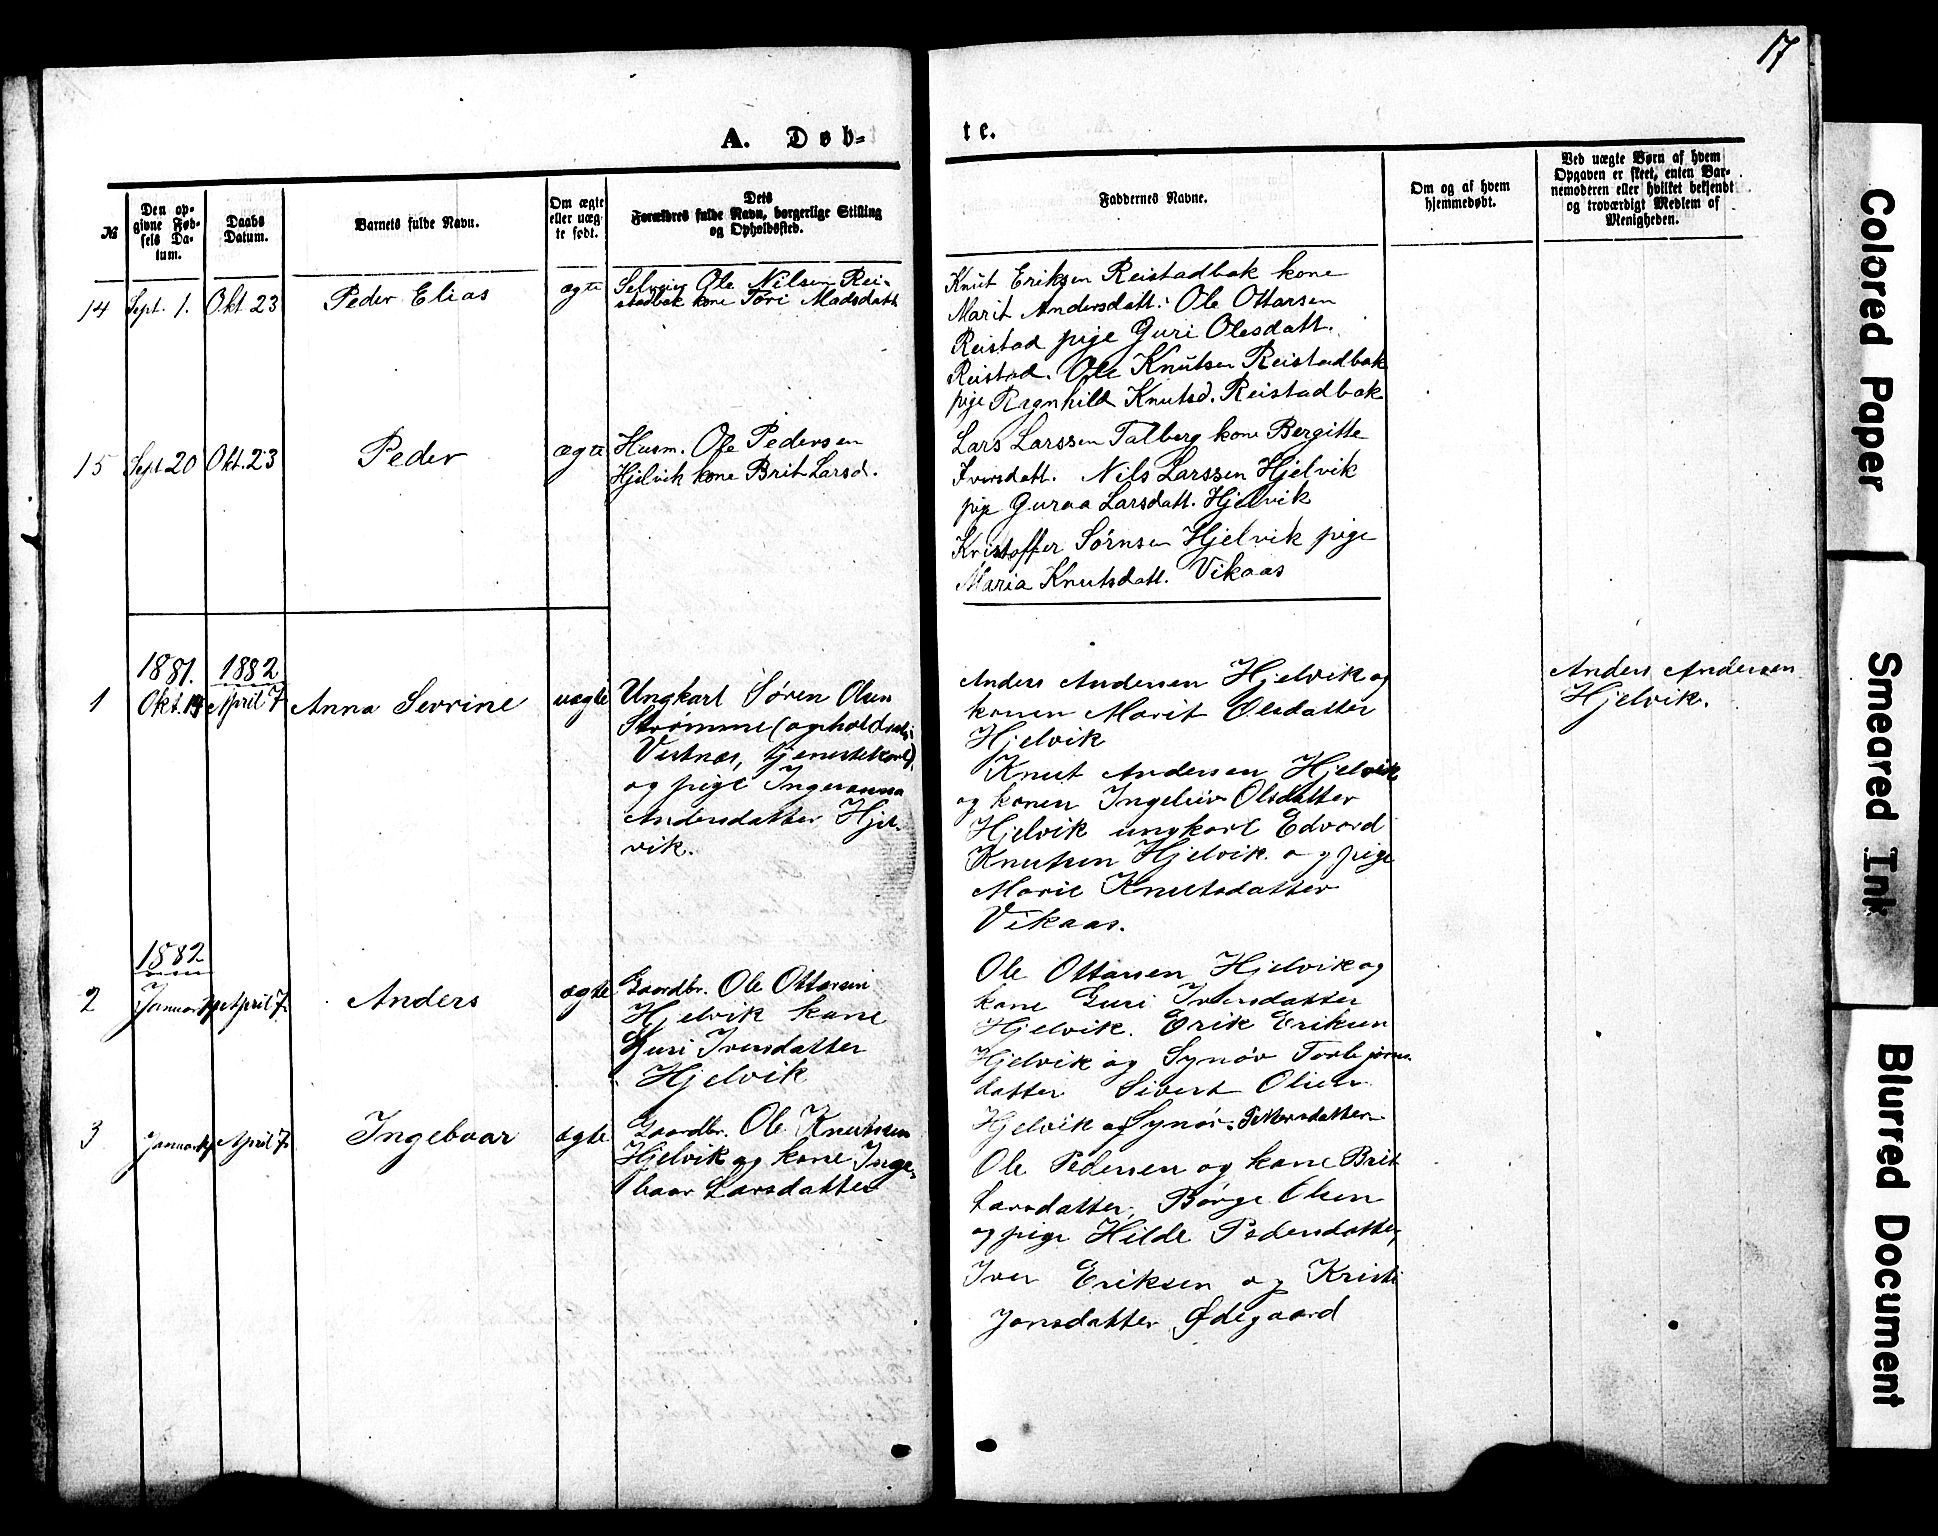 17
A. Døb-
te.
№
Den op-
givne Fød-
sels Da-
tum.
Daabs
Datum.
Barnets fulde Navn.
Om ægte
eller uæg-
te født.
Dets
Forældres fulde Navn, borgerlige Stilling
og Opholdssted.
Faddernes Navne.
Om og af hvem
hjemmedøbt.
Ved uægte Børn af hvem
Opgaven er skeet, enten Bar-
nemoderen eller hvilket bekjendt
og troværdigt Medlem af
Menigheden.
14 Sept. 1. Okt 23 Peder Elias ægte
Selveier Ole Nilsen Rei-
stadbak kone Tori Madsdatt
Knut Eriksen Reistadbak kone
Marit Andersdatt. Ole Ottarsen
Reistad pige Guri Olesdatt.
Reistad. Ole Knutsen Reistadbak
pige Ragnhild Knutsd. Reistadbak
15 Sept 20 Okt. 23 Peder ægte
Husm. Ole Pedersen
Hjelvik kone Brit Larsd.
Lars Larssen Talberg kone Bergitte
Iversdatt. Nils Larssen Hjelvik
pige Guraa Larsdatt. Hjelvik
Kristoffer Sørnsen Hjelvik pige
Maria Knutsdatt. Vikaas
1881. 1882
1 Okt. April 7 Anna Sevrine uægte
Ungkarl Søren Olsen
Strømme (opholdssted:
Vestnæs, tjenestekarl)
og pige Ingeranna
Andersdatter Hjel-
vik.
Anders Andersen Hjelvik og
konen Marit Olsdatter
Hjelvik
Knut Andersen Hjelvik
og konen Ingeleiv Olsdatter
Hjelvik ungkarl Edvard
Knutsen Hjelvik og pige
Marie Knutsdatter
Vikaas.
Anders Andersen
Hjelvik.
1882
2 Januar April 7 Anders ægte
Gaardbr. Ole Ottarsen
Hjelvik kone
Guri Iversdatter
Hjelvik
Ole Ottarsen Hjelvik og
kone Guri Iversdatter
Hjelvik. Erik Eriksen
Hjelvik og Synøv Torbjørns-
datter Sivert Olsen
Hjelvik og Synøv Pettersdatter
3 Januar April 7 Ingeboar ægte
Gaardbr. Ole Knutsen
Hjelvik og kone Inge-
boar Larsdatter
Ole Pedersen og kone Brit
Larsdatter, Børge Olsen
og pige Hilde Pedersdatter,
Iver Eriksen og Kristi
Jonsdatter Ødegaard
Colored Paper
Smeared Ink
Blurred Document